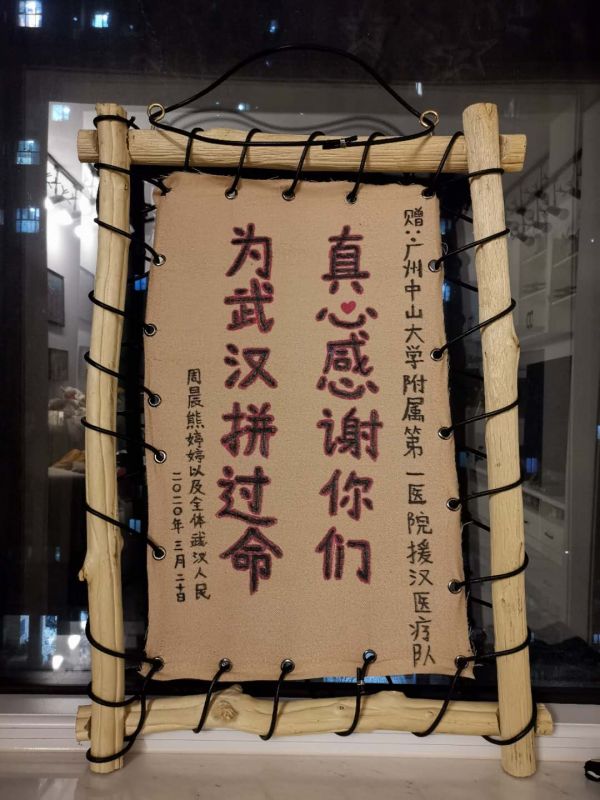 赠：广州中山大学附属第一医院援汉医疗队
真心感谢你们
为武汉拼过命
周晨熊婷婷以及全体武汉人民
二〇二〇年三月二十日